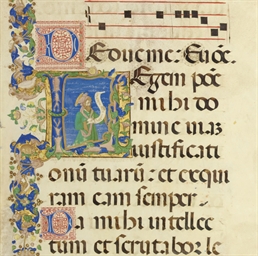 Deduc me: Euõe.
Legem põe
mihi do
mine uiaz
iustificati
onũ tuarũ: et exqui
ram eam semper·
Da mihi intellec
tum et scrutabor le